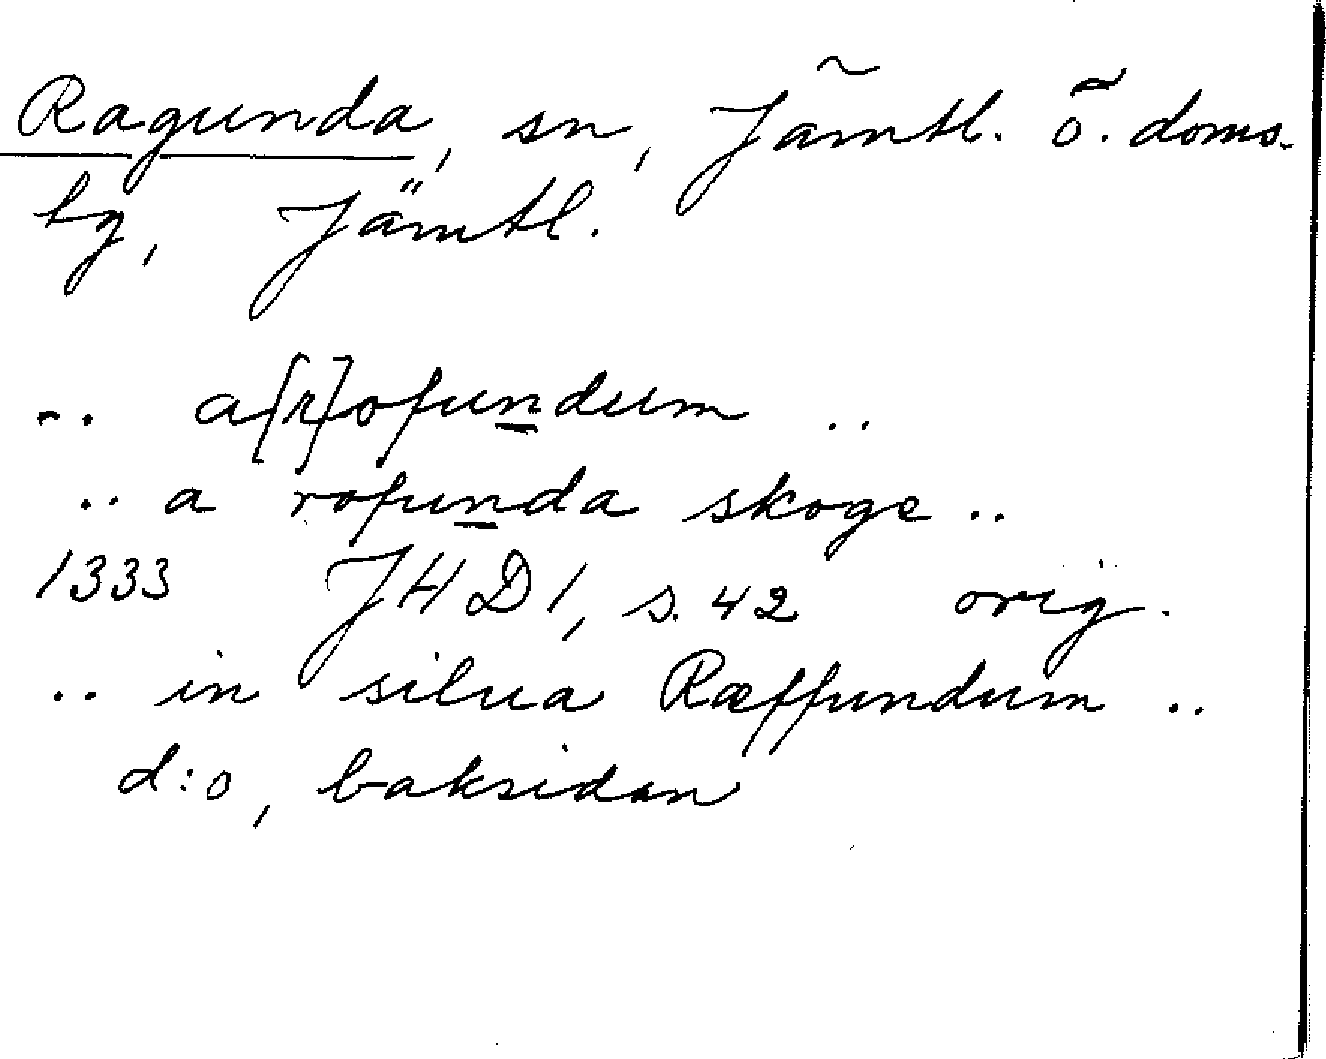 Ragunda, sn, Jämtl. ö. doms.
hg, Jämtl.
.. a[r]ofundum ..
.. a rofunda skoge ..
1333 JHD 1, s. 42 orig.
.. in silua Ræffundum ..
d:o, baksidan